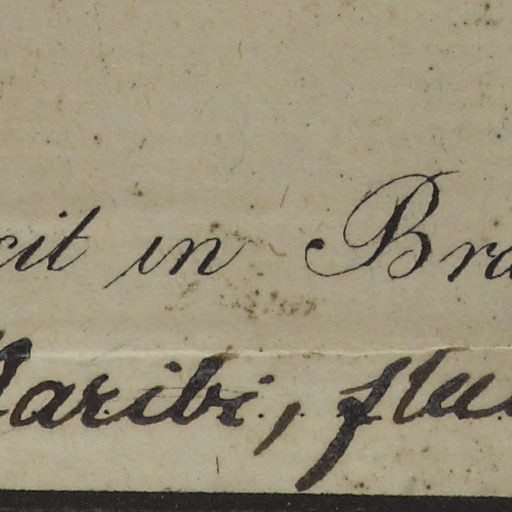 cit in Bra
aribi, flu